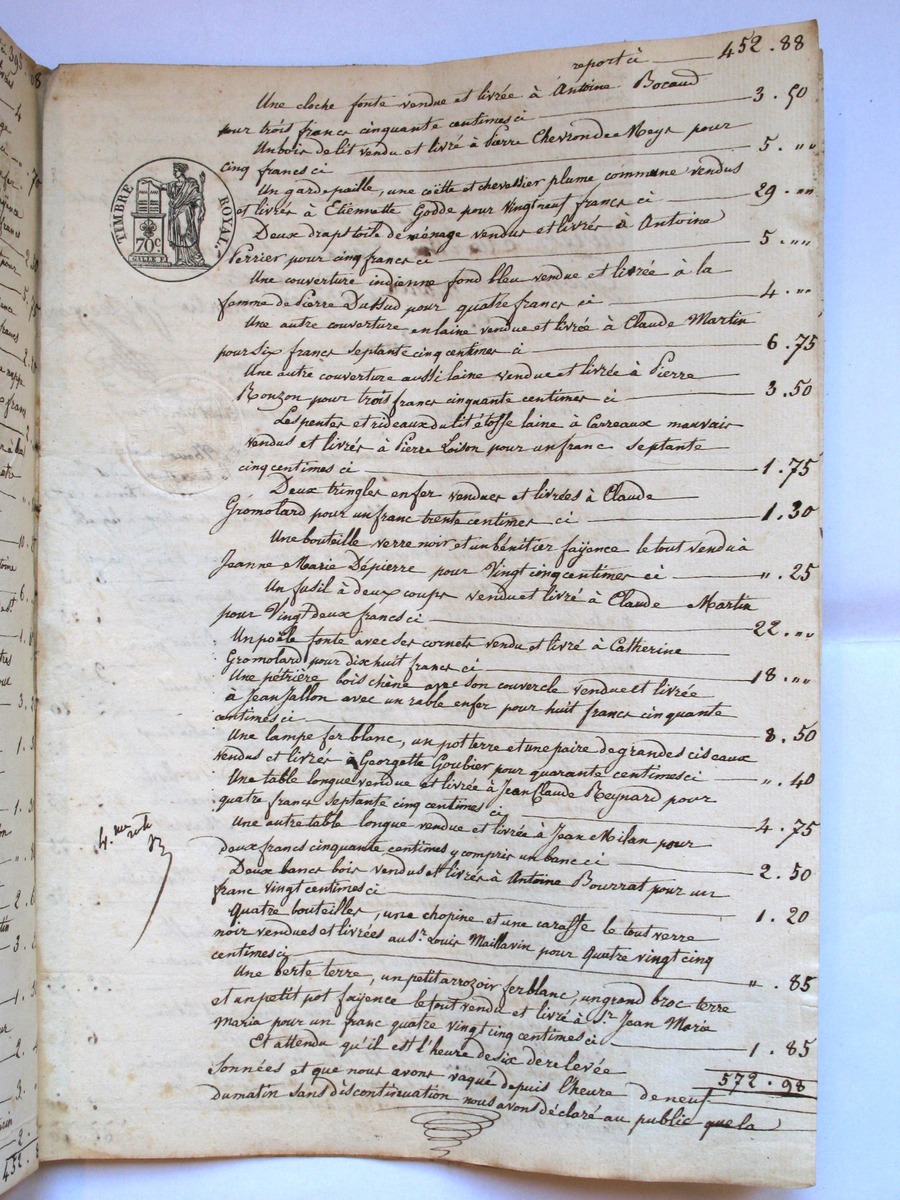 report ci 452.88
Une cloche fonte vendue et livrée à Antoine Bocaud
pour trois francs cinquante centimes ci 3.50
Un bois de lit vendu et livré à Pierre Chevron de Meys pour
cinq francs ci 5.""
Un garde paille, une coëtte et chevessier plume commune vendus
et livrés à Etiennette Godde pour Vingt neuf francs ci 29.""
Deux draps toile de ménage vendus et livrés à Antoine
Perrier pour cinq francs ci 5.""
Une couverture indienne fond bleu vendue et livrée à la
famme de Pierre Dussud pour quatre francs ci 4.""
Une autre couverture en laine vendue et livrée à Claude Martin
pour six francs septante cinq centimes ci 6.75
Une autre couverture aussi laine vendue et livrée à Pierre
Ronzon pour trois francs cinquante centimes ci 3.50
Les pentes et rideaux du lit étoffe laine à Carreaux mauvais
vendus et livrés à Pierre Loison pour un franc septante
cinq centimes ci 1.75
Deux tringles en fer vendues et livrées à Claude
Gromolard pour un franc trente centimes ci 1.30
Une bouteille verre noir et un bénitier fayence le tout vendu à
Jeanne Marie Dépierre pour Vingt cinq centimes ci ".25
Un fusil à deux coups vendu et livré à Claude Martin
pour Vingt deux francs ci 22.""
Un poële fonte avec ses cornets vendu et livré à Catherine
Gromolard pour dix huit francs ci 18.""
Une pétrière bois chêne avec son couvercle vendue et livrée
à Jean Jallon avec un rable en fer pour huit francs cinquante
centimes ci 8.50
Une lampe fer blanc, un pot terre et une paire de grandes ciseaux
vendus et livrés à Georgette Goubier pour quarante centimes ci ".40
Une table longue vendue et livrée à Jean Claude Reynard pour
quatre francs septante cinq centimes ci 4.75
Une autre table longue vendue et livrée à Jean Milan pour
deux francs cinquante centimes y compris un banc ci 2.50
Deux bancs bois vendus et livrés à Antoine Bourrat pour un
franc vingt centimes ci 1.20
Quatre bouteilles, une chopine et une caraffe le tout verre
noir vendues et livrées au Sr. Louis Maillavin pour Quatre vingt cinq
centimes ci ".85
Une berte terre, un petit arrozoir fer blanc, un grand broc terre
et un petit pot fayence le tout vendu et livré à Sr. Jean Marie
Maria pour un franc quatre vingt cinq centimes ci 1.85
Et attendu qu'il est l'heure de six de relevée
572.98
sonnées et que nous avons vaqué depuis l'heure de neuf
du matin sans discontinuation nous avons déclaré au public que la
TIMBRE ROYAL.
70c